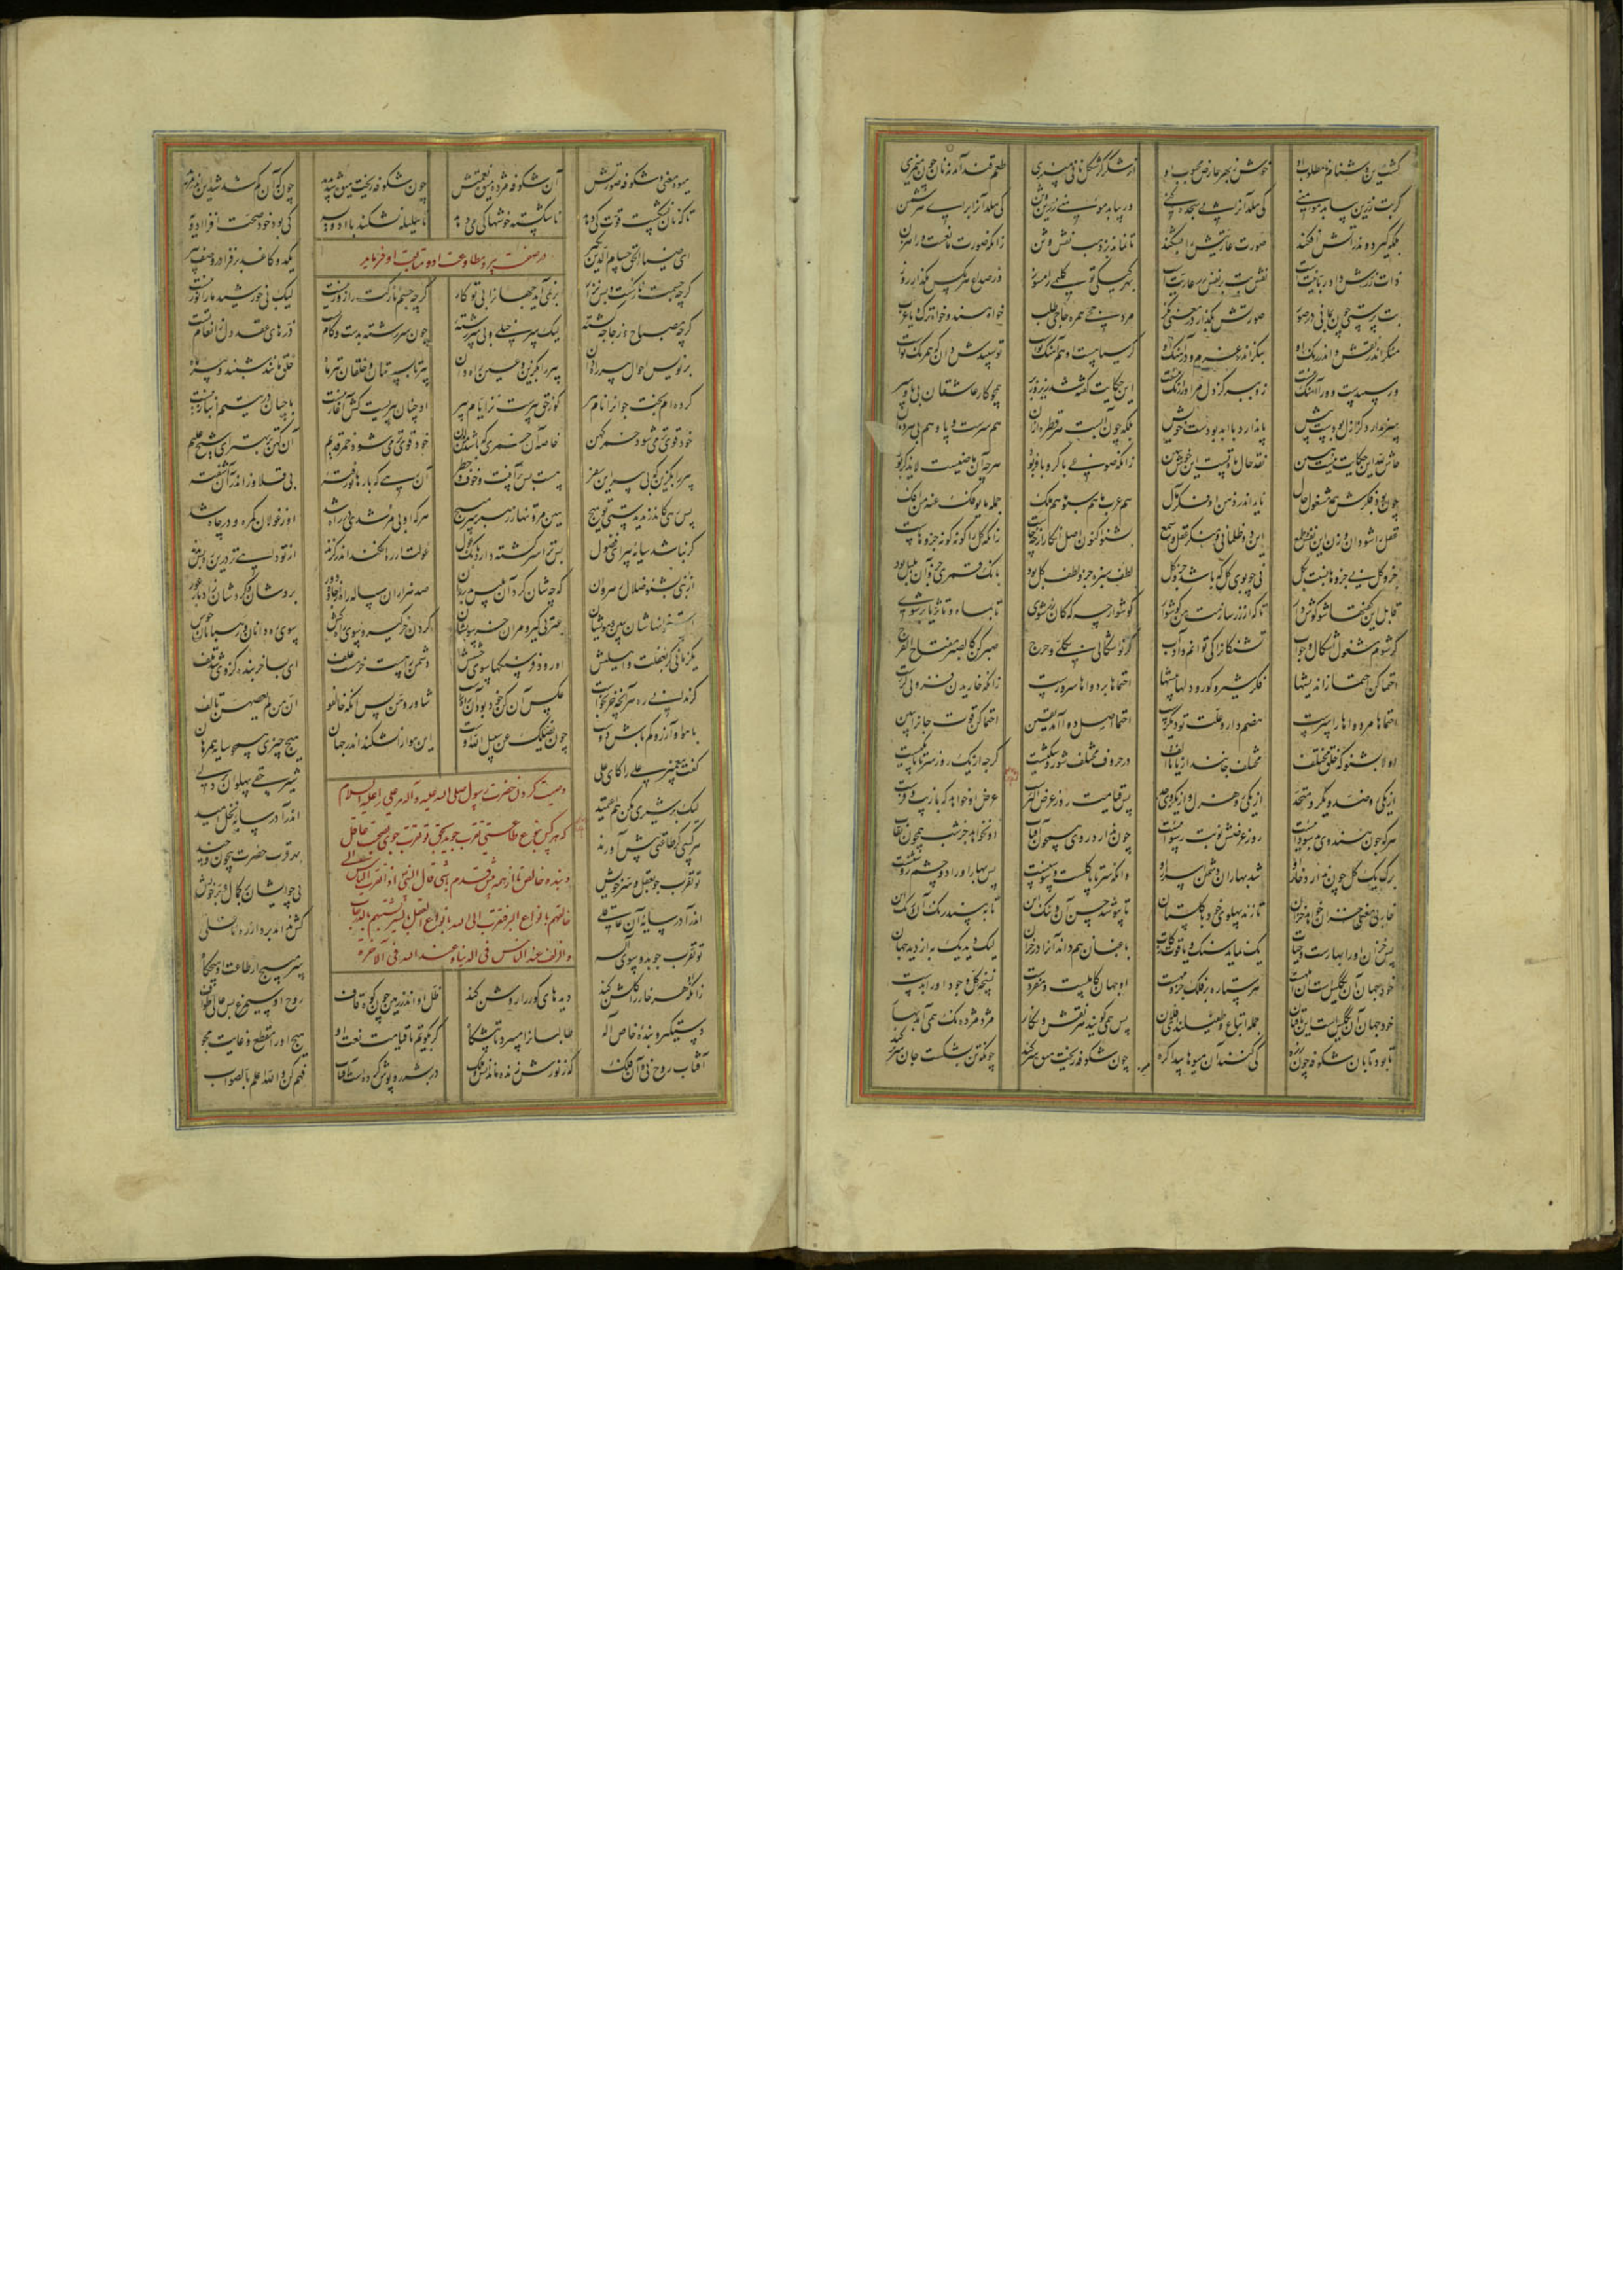 خوش ز بهر عارض محبوب او از شکر گر شکل نانی میپزی طعم قند آید نه نان چون میمزی
گر بت زرین بیابد مومنی کی هلد آنرا پی سجده کنی ور بیابد مومنی زرین وثن کی هلد آنرا برای هر شمن
بلکه گیرد و اندر آتش افکند صورت عاریتش را بشکند تا نماند بر ذهب نقش وثن زانکه صورت مانعست و راه زن
ذات زرش داد ربانیتست نقش بت بر نقد زر عاریتست بهر کیکی تو گلیمی را مسوز وز صداع هر مگس مگذار روز
بت پرستی چون بمانی در صور صورتش بگذار و در معنی نگر مرد حجی همره حاجی طلب خواه هندو خواه ترک و یا عرب
منگر اندر نقش و اندر رنگ او بنگر اندر عزم و در آهنگ او گر سیاهست او هم آهنگ توست تو سپیدش دان که هم رنگ توست
ور سپیدست و ورا آهنگ نیست زو ببر کز دل مر او را رنگ نیست این حکایت گفته شد زیر و زبر همچو کار عاشقان بی پا و سر
سر ندارد کز ازل بودست پیش پا ندارد با ابد بودست خویش بلکه چون آبست هر قطره ازان هم سرست و پا و هم بی هر دوان
حاش لله این حکایت نیست هین نقد حال ما و تست این خوش ببین زانکه صوفی با کر و با فر بود هرچه آن ماضیست لا یذکر بود
چون بود فکرش همه مشغول حال ناید اندر ذهن او فکر مآل هم عرب ما هم سبو ما هم ملک جمله ما یوفک عنه من افک
عقل را شو دان و زن این نفس و طمع این دو ظلمانی و منکر عقل شمع بشنو اکنون اصل انکار از چه خاست زانکه کل را گونه گونه جزوهاست
جزو کل نی جزوها نسبت بکل نی چو بوی گل که باشد جزو گل لطف سبزه جزو لطف گل بود بانگ قمری جزو آن بلبل بود
قابل این گفتها شو گوشوار تا که از زر سازمت من گوشوار گوشوار چه که کان زر شوی تا بماه و تا ثریا بر شوی
گر شوم مشغول اشکال و جواب تشنگانرا کی توانم داد آب گر تو اشکالی بکلی و حرج صبر کن کالصبر مفتاح الفرج
احتما کن احتما ز اندیشها فکر شیر و گور و دلها بیشها احتماها بر دواها سرورست زانکه خاریدن فزونی گرست
احتماها مر دواها را سرست هضم دارو علت تو دیگرست احتما اصل دوا آمد یقین احتما کن قوت جانرا ببین
اولا بشنو که خلق مختلف مختلف جانند از یا تا الف در حروف مختلف شور و شکیست گرچه از یک رو ز سر تا پا یکیست
از یکی رو ضد و یکرو متحد از یکی رو هزل و از یکروی جد پس قیامت روز عرض اکبرست عرض او خواهد که با زیب و فرست
هر که چون هندوی بد سودائیست روز عرضش نوبت رسوائیست چون ندارد روی همچون آفتاب او نخواهد جز شب همچون نقاب
برگ یک گل چون ندارد خار او شد بهاران دشمن اسرار او وانکه سر تا پا گلست و سوسنست پس بهار او را دو چشم روشنست
خار بی معنی خزان خواهد خزان تا زند پهلوی خود با گلستان تا بپوشد حسن آن و ننگ این تا نبینی رنگ آن و رنگ این
پس خزان او را بهارست و حیات یک نماید سنگ و یاقوت زکات باغبان هم داند آنرا در خزان لیک دید یک به از دید جهان
خود جهان آن یک کس است هر ستاره بر فلک جزو مهست او جهان کاملست و مفردست نسخه کل وجود او را بدست
خود جهان آن یک کس است باقیان جمله اتباع و طفیلند ای فلان پس همی گویند هر نقش و نگار مژده مژده نک همی آید بهار
تا بود تابان شکوفه چون زره کی کنند آن میوها پیدا گره چون شکوفه ریخت میوه سر کند چونکه تن بشکست جان سر بر کند
میوه معنی و شکوفه صورتش آن شکوفه مژده میوه نعمتش چون شکوفه ریخت میوه شد پدید چون که آن کم شد شد این اندر مزید
تا که نان نشکست قوت کی دهد ناشکسته خوشها کی می دهد تا هلیله نشکند با ادویه کی بود خود صحت افزا ادویه
در صفت پیر و مطاوعت او
ای ضیاء الحق حسام الدین بگیر یکدو کاغذ بر فزا در وصف پیر
گرچه جسمت نازکست و بس نزار برنمی آید جهانرا بی تو کار گرچه جسم نازکت را زور نیست لیک بی خورشید ما را نور نیست
گرچه مصباح و زجاجه گشته لیک سرخیل دلی سر رشته چون سر رشته بدست و کام تست درهای عقد دل ز انعام تست
بر نویس احوال پیر راه دان پیر را بگزین و عین راه دان پیر تابستان و خلقان تیر ماه خلق مانند شبند و پیر ماه
کرده ام بخت جوانرا نام پیر کو ز حق پیرست نز ایام پیر او چنان پیریست کش آغاز نیست با چنان در یتیم انباز نیست
خود قوی تر می شود خمر کهن خاصه آن خمری که باشد من لدن خود قوی تر می شود خمر قدیم
پیر را بگزین که بی پیر این سفر هست بس پر آفت و خوف و خطر آن رهی که بارها تو رفته بی قلاوز اندر آن آشفته
پس رهی کاندر ندیدستی تو هیچ هین مرو تنها ز رهبر سر مپیچ هر که او بی مرشدی در راه شد او ز غولان گمره و در چاه شد
گر نباشد سایه پیر ای فضول بس ترا سرگشته دارد بانگ غول غولت از ره افکند اندر گزند از تو داهی تر درین ره بس بدند
از نبی بشنو ضلال رهروان که چه شان کرد آن بلیس بد روان صد هزاران ساله راه از جاده دور بردشان و کردشان ادبار و عور
استخوانهاشان ببین و مویشان عبرتی گیر و مران خر سویشان گردن خر گیر و سوی راه کش سوی ره بانان و ره دانان خوش
یکزمانی گر بغفلت واهلیش او رود فرسنگها سوی حشیش دشمن راهست خر مست علف ای بسا خر بنده کز وی شد تلف
گر ندانی ره هر آنچه خر بخواست عکس آن کن خود بود آن راه راست شاوروهن پس آنگه خالفوا ان من لم یعصهن تالف
با هوا و آرزو کم باش دوست چون یضلک عن سبیل الله اوست این هوا را نشکند اندر جهان هیچ چیزی همچو سایه همرهان
وصیت کردن حضرت رسول صلی الله علیه و آله مر علی را علیه السلام
گفت پیغمبر علی را کای علی شیر حقی پهلوان پردلی
لیک بر شیری مکن هم اعتمید اندرآ در سایه نخل امید
که هر کس بنوع طاعتی تقرب جوید بحق تو تقرب جوی بصحبت عاقل
هر کسی گر طاعتی پیش آورند بهر قرب حضرت بیچون و چند
و بنده خاص تا ازیشان همه پیش قدم باشی قال النبی اذا تقرب الناس الی
تو تقرب جو بعقل و سر خویش نی چو ایشان بر کمال و بر خویش
خالقهم بانواع البر فتقرب الی الله بانواع العقل
اندرآ در سایه آن عاقلی کش نداند برد از ره ناقلی
عند الناس فی الدنیا و عند الله فی الآخرة
تو تقرب جو بدو سوی اله سر مپیچ از طاعت او هیچگاه
زانکه او هر خار را گلشن کند دیدهای کور را روشن کند ظل او اندر زمین چون کوه قاف روح او سیمرغ بس عالی طواف
دستگیر و بنده خاص اله طالبانرا میبرد تا پیشگاه گر بگویم تا قیامت نعت او هیچ او را مقطع و غایت مجو
آفتاب روح نی آن فلک که ز نورش زنده ماند انس و ملک در بشر روپوش کردست آفتاب فهم کن والله اعلم بالصواب